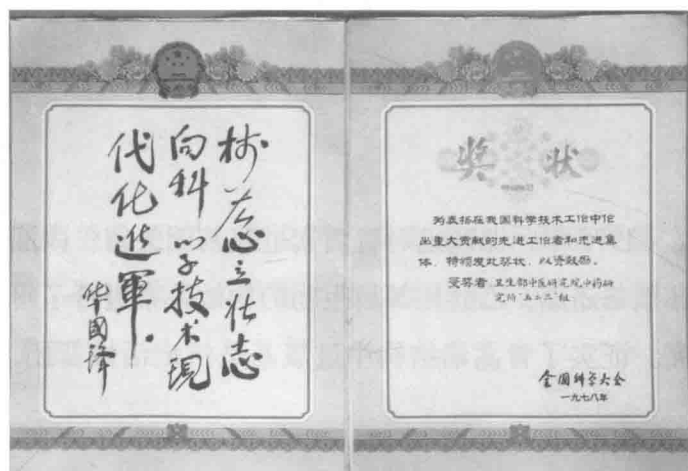 树雄心立壮志
向科学技术現
代化進軍。
华國鋒
奖状
为表扬在我国科学技术工作中作
出重大贡献的先进工作者和先进集
体，特颁发此奖状，以资鼓励。
受奖者：卫生部中医研究院中药研
究所“五二三”组
全国科学大会
一九七八年